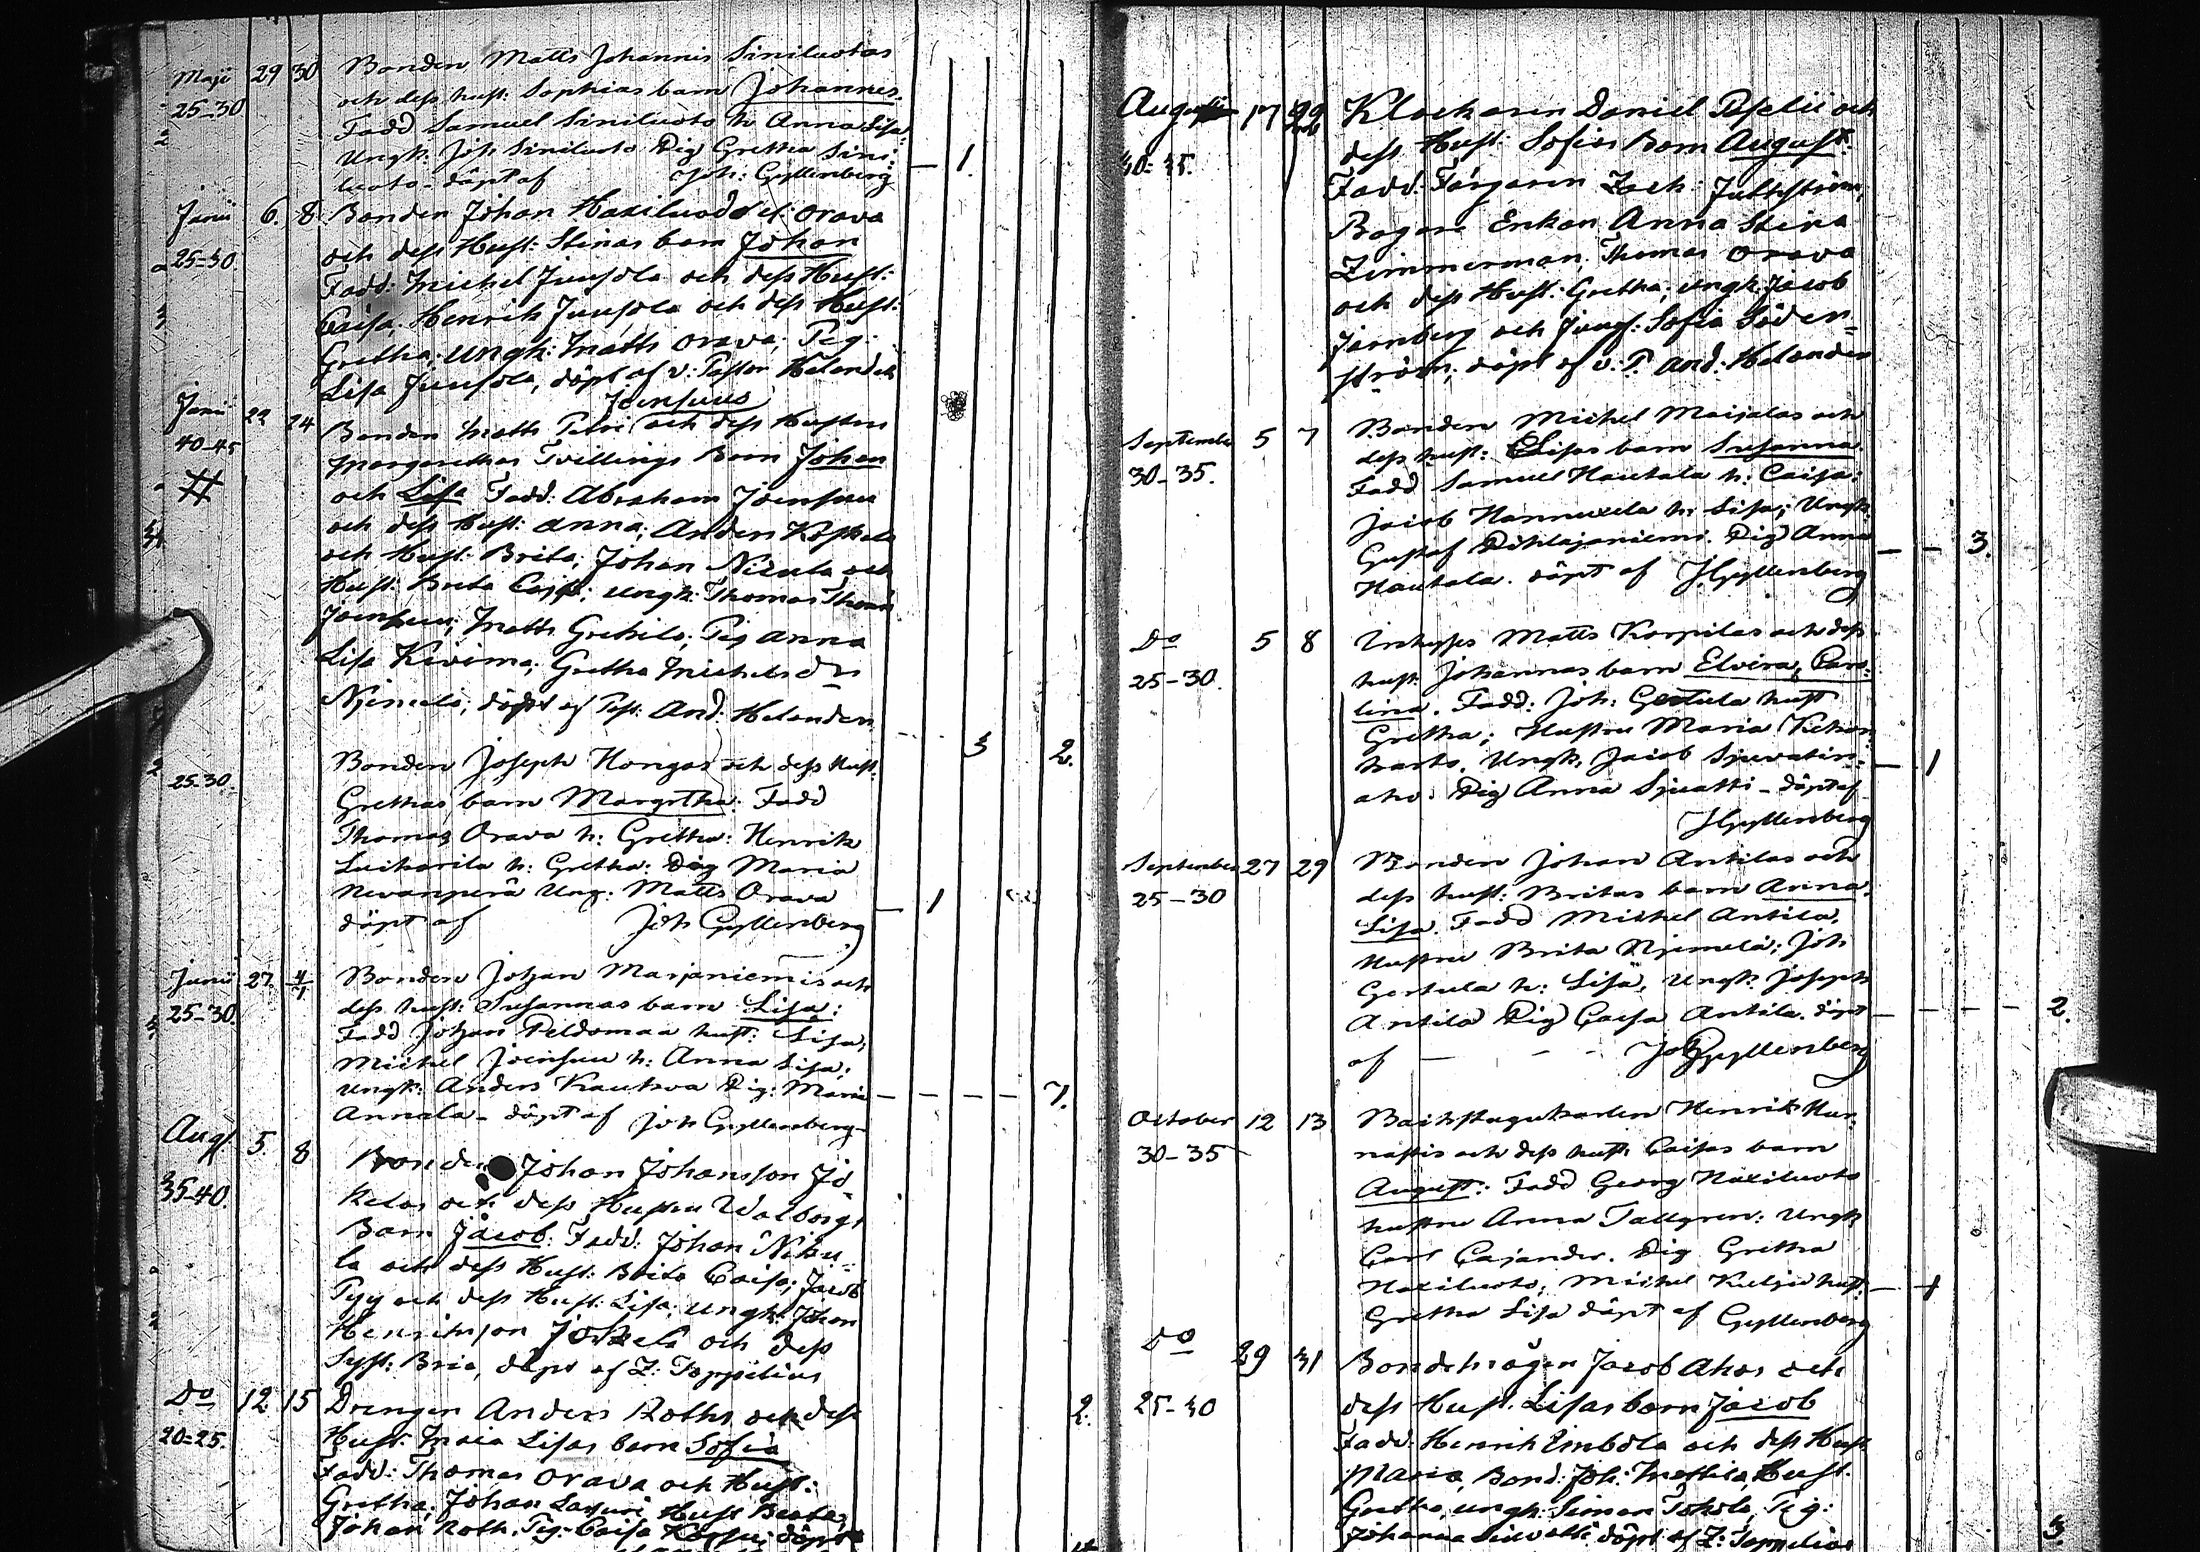 Maji 29 30 Bonden Matts Johannis Siniluotos
25-30 och dess hust: Sophias barn Johannes.
Fadd Samuel Siniluoto h Anna Lisa
Ungk. Joh Siniluoto Pig Gretha Sini:
luoto - döpt af Joh: Gyllenberg
1.
Junii 6. 8 Bonden Johan Haxiluodo el: Orava
25-30 och dess Hust: Stinas barn Johan
Fadd: Michel Juusola och dess Hust:
Caisa, Henrik Juusola och dess Hust:
Gretha; Ungk: Matts Orava; Pig:
Lisa Juusola, döpt af v: Pastor Helander
Joensuus
Junii 22 24 Bonden Matts Petri och dess Hustrus
40-45 Margarethas Tvillings Barn Johan
och Lisa Fadd: Abraham Joensuu
och dess Hust: Anna; Anders Koskela
och Hust: Brita; Johan Nicula och
Hust: Brita Caisa; ungk: Thomas Thomss
Joensuu; Matts Grekilä; Pig Anna
Lisa Kivima; Gretha Michelsdr
Njemelä; döpt af Past: And: Helander
3 2.
Bonden Joseph Hongas och dess hust.
25-30. Grethas barn Margetha: Fadd
Thomas Orava h: Gretha: Henrik
h: Gretha: Pig Maria
Nevanperä Ung: Matts Orava
döpt af Joh Gyllenberg
1
Junii 27. 4/7 Bonden Johan Marjaniemis och
25-30. dess hust: Susannas barn Lisa:
Fadd Johan Peldomaa hust: Lisa;
Michel Joensuu h: Anna Lisa;
Ungk: Anders Kaukva Pig: Maria
Annala - döpt af Joh Gyllenberg
7.
Aug 5. 8 Bonden Johan Johansson Jo
35-40. kelas och dess Hustru Walborgs
Barn Jacob: Fadd: Johan Niku
la och dess Hust: Brita Caisa; Jacob
Pyy och dess Hust: Lisa: ungk: Johan
Henriksson Jokela och dess
Syst: Bria, döpt af Z: Toppelius
Do 12 15 Drengen Anders Roths och dess
2.
20-25. Hust: Maia Lisas barn Sofia
Fadd: Thomas Orava och Hust:
Gretha; Johan Lassuri Hust Beata;
Johan Roth. Pig: Caisa Karsu; döpt
Augusti 17 29 Klockaren Daniel Peselii och
30-35. dess Hust: Sofias Barn August.
Fadd: Färgaren Zach: Fulkström,
Bagare Enkan Anna Stina
Zimmerman; Thomas Orava
och dess Hust: Gretha; ungk: Jacob
Järnberg och Jungf: Sofia Söder=
ström; döpt af v: P. And: Helander
September 5 7 Bonden Michel Maijalas och
30-35. dess hust: Lisas barn Susanna
Fadd Samuel Hautala h: Caisa:
Jacob Hannuxela h: Lisa; Ungk.
Gustaf Pihlajaniemi. Pig Anna
3.
Hautala. döpt af JGyllenberg
Do 5 8 Inhyses Matts Korpilas och dess
25-30. hust: Johannas barn Elvira, Caro:
lina. Fadd: Joh: Gertula hust
Gretha; Hustru Maria Kekon
harto, Ungk, Jacob Sjuvatin:
1
aho. Pig Anna Sjuatti - döpt af
JGyllenberg
September 27 29 Bonden Johan Antilas och
25-30 dess hust: Britas barn Anna
Lisa. Fadd Michel Antila,
Hustru Brita Njemelä; Joh
Gertula h: Lisa, Ungk. Joseph
Antila Pig Caisa Antila. döpt
2.
af Joh Gyllenberg
October 12 13 Henrik Hur:
30-35 nastis och dess hust: Caisas barn
August: Fadd Georg Haxiluoto
hustru Anna Tallgren: Ungk
Carl Cajander. Pig Gretha
Haxiluoto; Michel Kuljo hust:
1
Gretha Lisa döpt af Gyllenberg
Do 29 31 Bondehrågen Jacob Ahos och
25-30 dess Hust. Lisas barn Jacob
Fadd: Henrik Embola och dess Hust
Maria, Bond: Joh: Mattila, Hust.
Gretha, ungk: Simon Tokola, Pig:
Johanna döpt af Z: Toppelius
3.